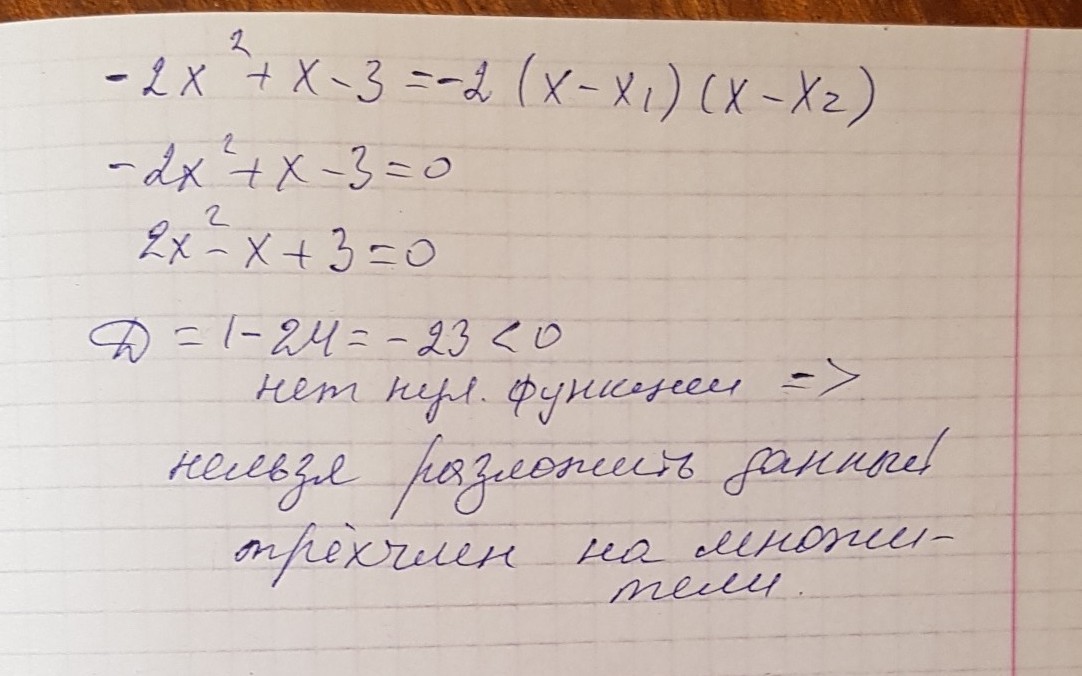 -2x² + x - 3 = -2 (x - x₁) (x - x₂)
-2x² + x - 3 = 0
2x² - x + 3 = 0
D = 1 - 24 = -23 < 0
нет нул. функции =>
нельзя разложить данный
трёхчлен на множи-
тели.